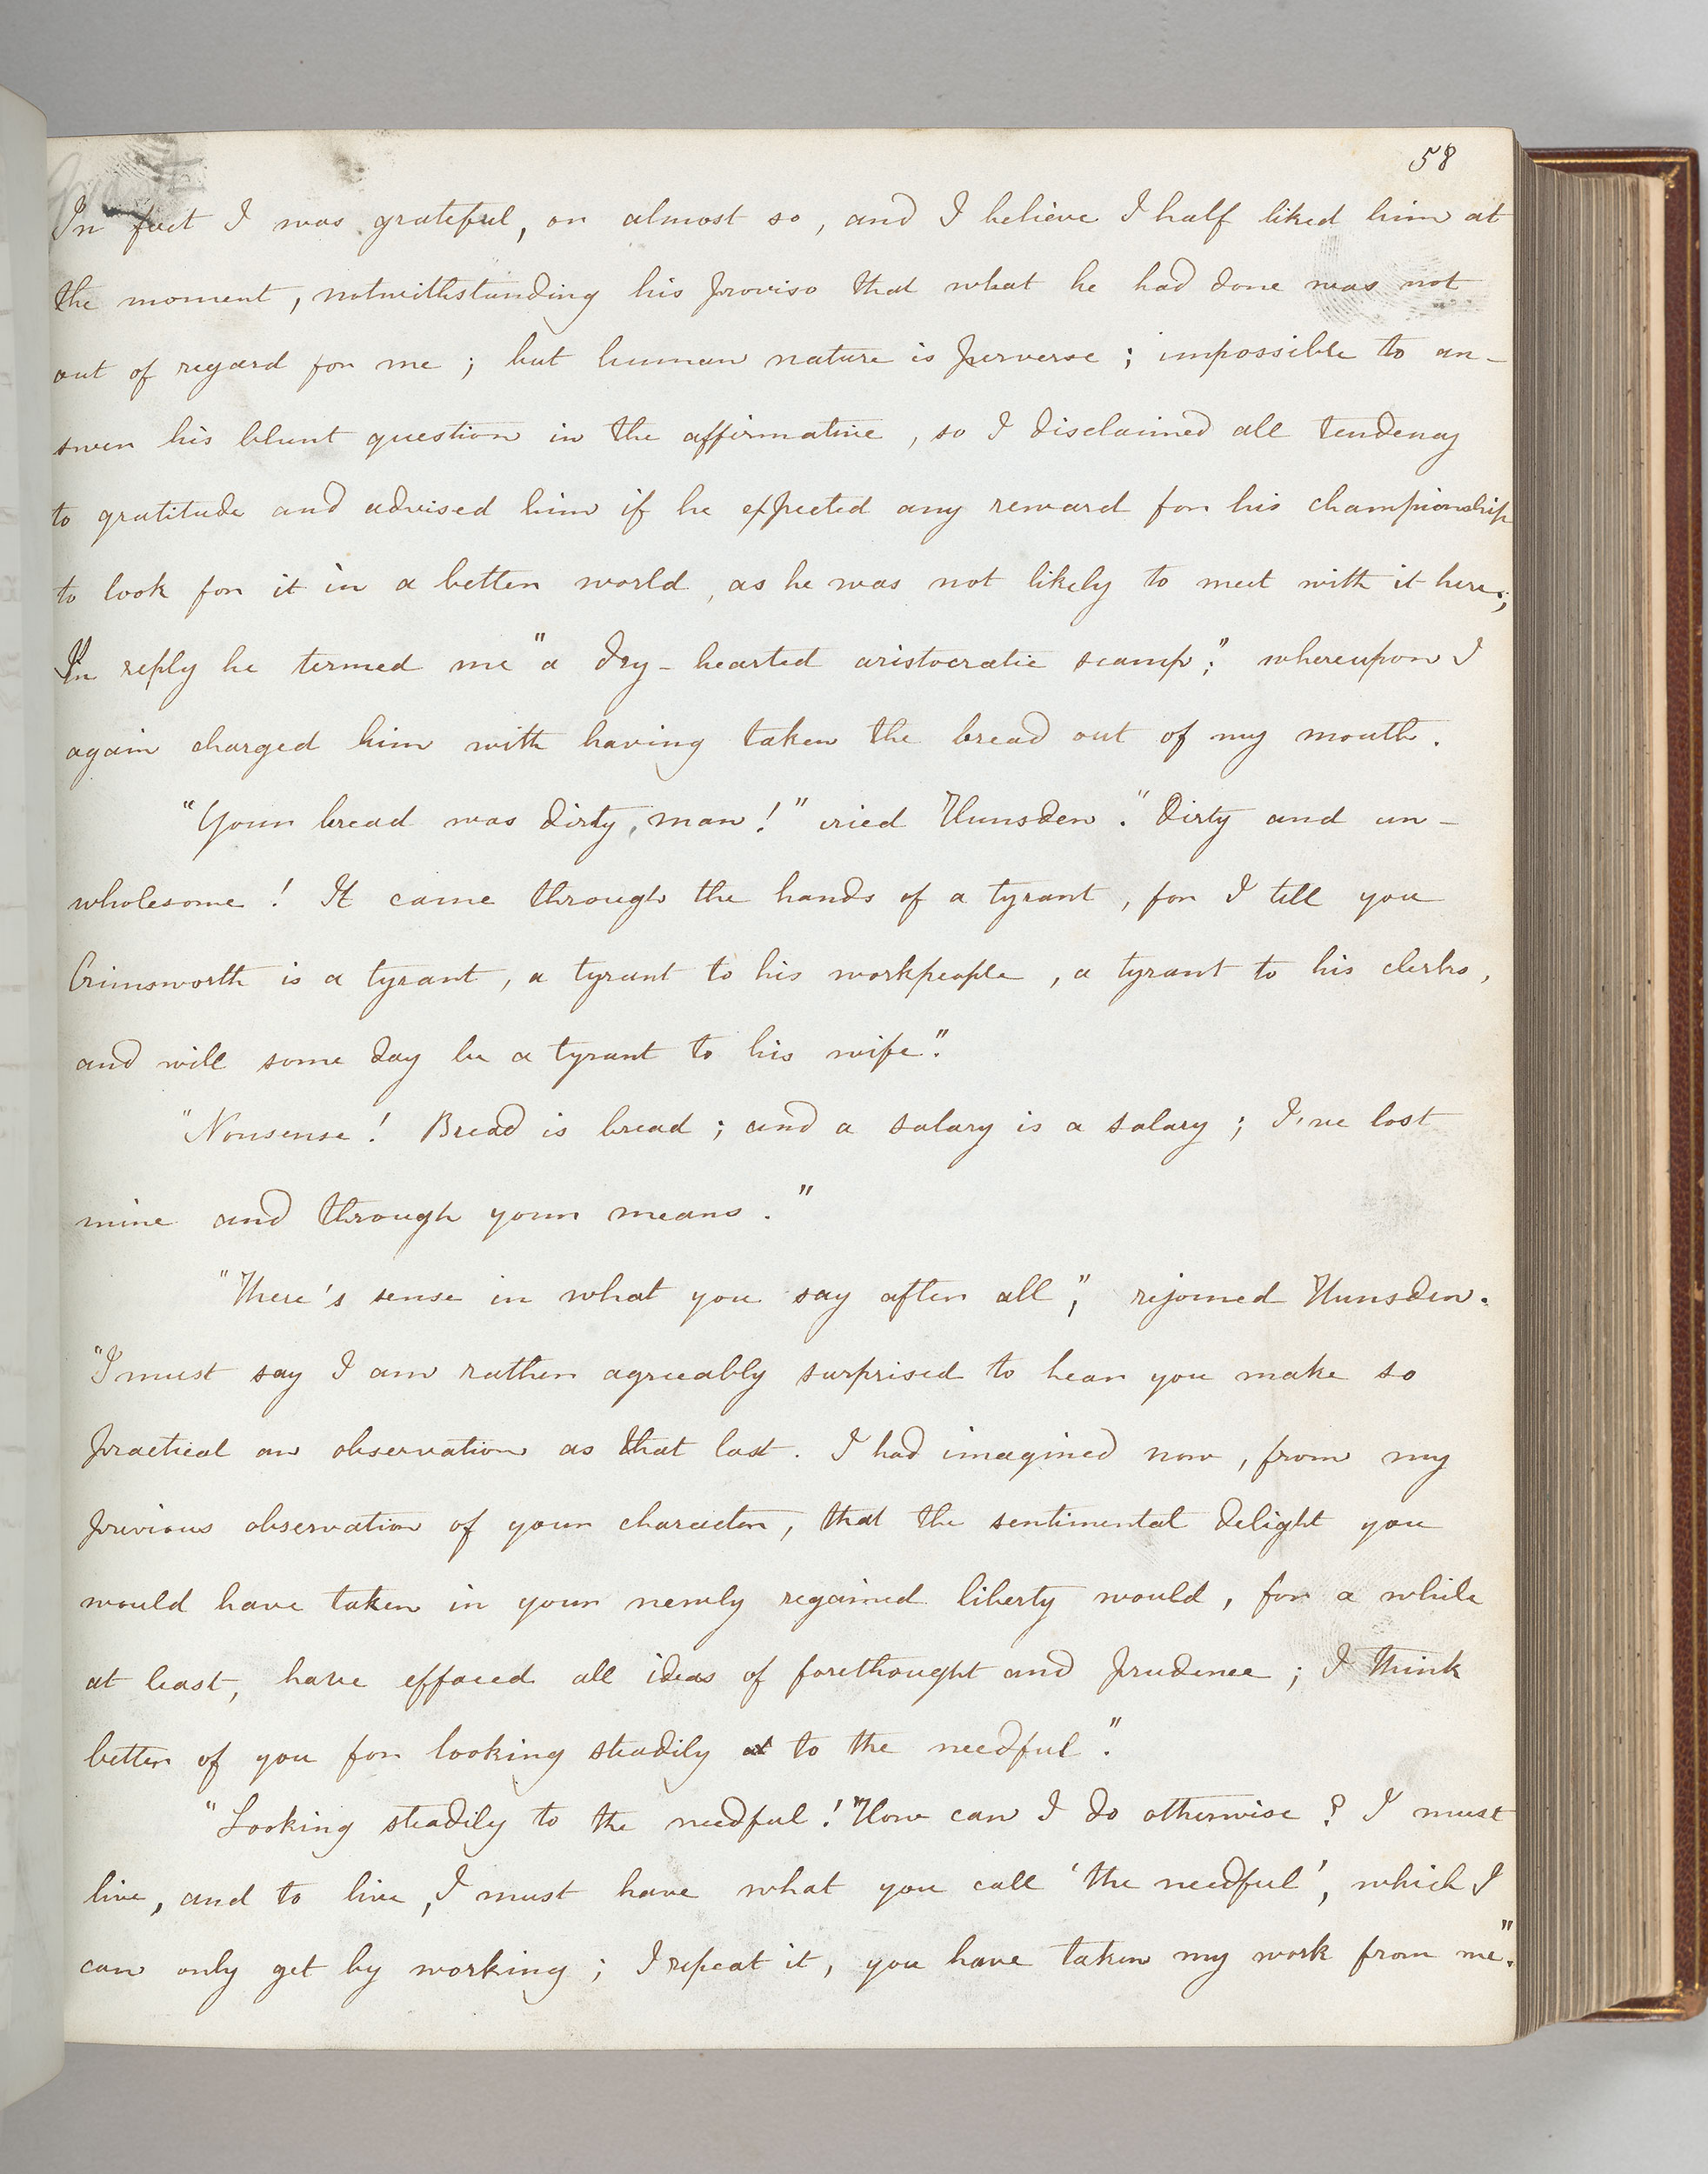 58
In fact I was grateful, or almost so, and I believe I half liked him at
the moment, notwithstanding his proviso that what he had done was not
out of regard for me; but human nature is perverse; impossible to an-
swer his blunt question in the affirmative, so I disclaimed all tendency
to gratitude and advised him if he expected any reward for his championship
to look for it in a better world, as he was not likely to meet with it here;
In reply he termed me "a dry-hearted aristocratic scamp;" whereupon I
again charged him with having taken the bread out of my mouth.
"Your bread was dirty, man!" cried Hunsden. "Dirty and un-
wholesome! It came through the hands of a tyrant, for I tell you
Crimsworth is a tyrant, a tyrant to his workpeople, a tyrant to his clerks,
and will some day be a tyrant to his wife."
"Nonsense! Bread is bread; and a salary is a salary; I've lost
mine and through your means."
"There's sense in what you say after all," rejoined Hunsden.
"I must say I am rather agreeably surprised to hear you make so
practical an observation as that last. I had imagined now, from my
previous observation of your character, that the sentimental delight you
would have taken in your newly regained liberty would, for a while
at least, have effaced all ideas of forethought and prudence; I think
better of you for looking steadily at to the needful."
"Looking steadily to the needful!" How can I do otherwise? I must
live, and to live, I must have what you call 'the needful', which I
can only get by working; I repeat it, you have taken my work from me."